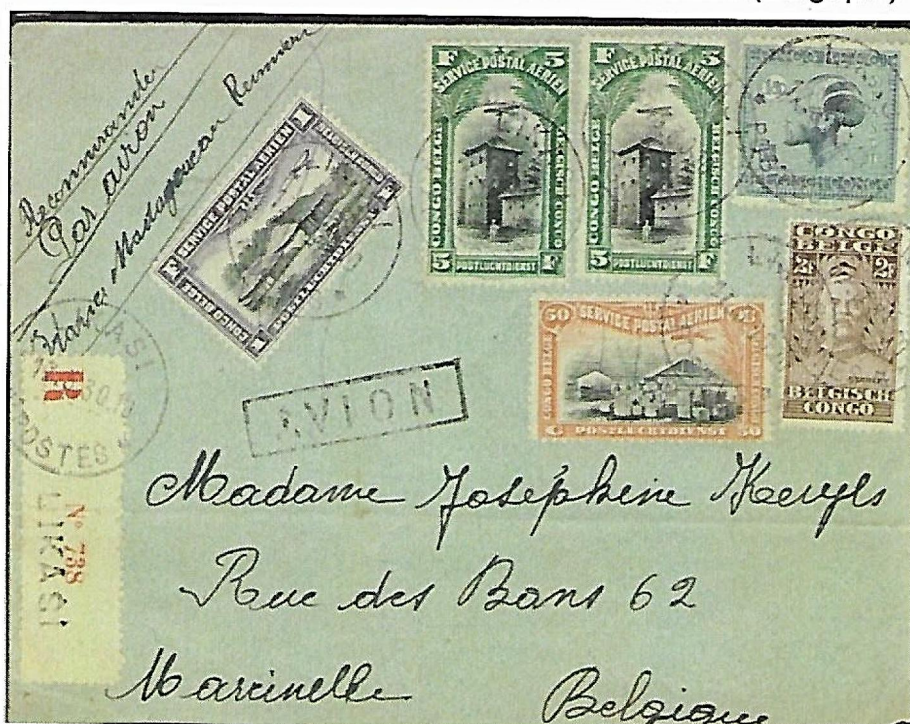 Recommander
Par avion
Madagascar
F 5
SERVICE POSTAL AÉRIEN
CONGO BELGE
BELGISCH CONGO
5 POSTLUCHTDIENST F
F 5
SERVICE POSTAL AÉRIEN
CONGO BELGE
BELGISCH CONGO
5 POSTLUCHTDIENST F
SERVICE POSTAL AÉRIEN
CONGO BELGE
CONGO
BELGE
2F 2F
BELGISCH
CONGO
50
SERVICE POSTAL AÉRIEN
CONGO BELGE
POSTLUCHTDIENST
C 50
AVION
R
POSTES
Nº 738
LIKASI
Madame Joséphine
Rue des Bans 62
Marcinelle Belgique